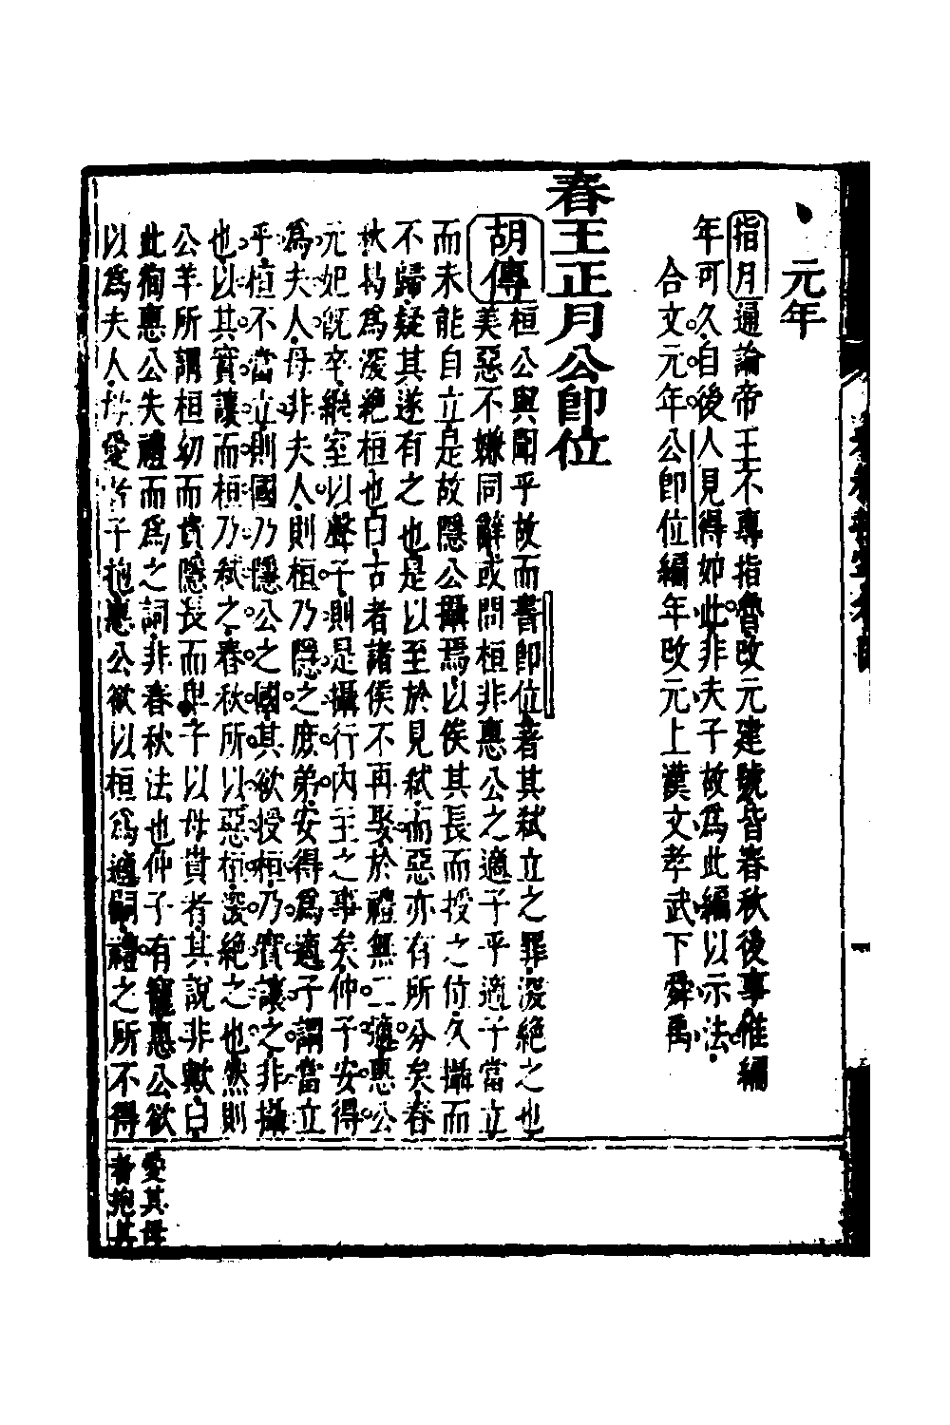 元年
指月通論帝王不專指魯改元建號皆春秋後事惟編
年可久自後人見得如此非夫子故爲此編以示法
合文元年公卽位編年改元上漢文孝武下舜禹
春王正月公卽位
胡傳桓公與聞乎故而書卽位著其弒立之罪深絕之也
美惡不嫌同辭或問桓非惠公之適子乎適子當立
而未能自立是故隱公攝焉以俟其長而授之位久攝而
不歸疑其遂有之也是以至於見弒而惡亦有所分矣春
秋曷爲深絕桓也曰古者諸侯不再娶於禮無二適惠公
元妃旣卒繼室以聲子則是攝行內主之事矣仲子安得
爲夫人母非夫人則桓乃隱之庶弟安得爲適子謂當立
乎桓不當立則國乃隱公之國其欲授桓乃實讓之非攝
也以其實讓而桓乃弒之春秋所以惡桓深絕之也然則
公羊所謂桓幼而貴隱長而卑子以母貴者其說非歟曰
此徇惠公失禮而爲之詞非春秋法也仲子有寵惠公欲
以爲夫人母愛者子抱惠公欲以桓爲適嗣禮之所不得
愛其母
者抱其